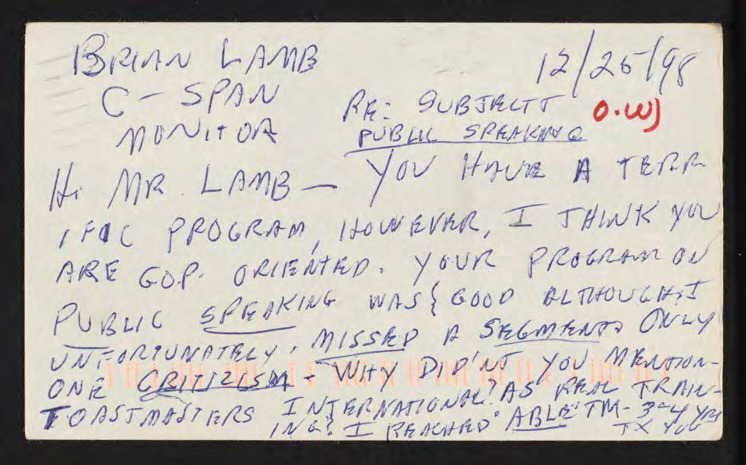 BRIAN LAMB
C-SPAN
MONITOR
12/25/98
RE: SUBJECTT
PUBLIC SPEAKING
O.W)
HI MR. LAMB — YOU HAVE A TERR
IFIC PROGRAM, HOWEVER, I THINK YOU
ARE G.O.P. ORIENTED. YOUR PROGRAM ON
PUBLIC SPEAKING WAS GOOD ALTHOUGH, I
UNFORTUNATELY, MISSED A SEGMENT. ONLY
ONE CRITIZISM - WHY DID'NT YOU MENTION-
TOASTMASTERS INTERNATIONAL! AS REAL TRAIN-
ING? I REACHED "ABLE" TM - 3-4 YRS
TX YOU